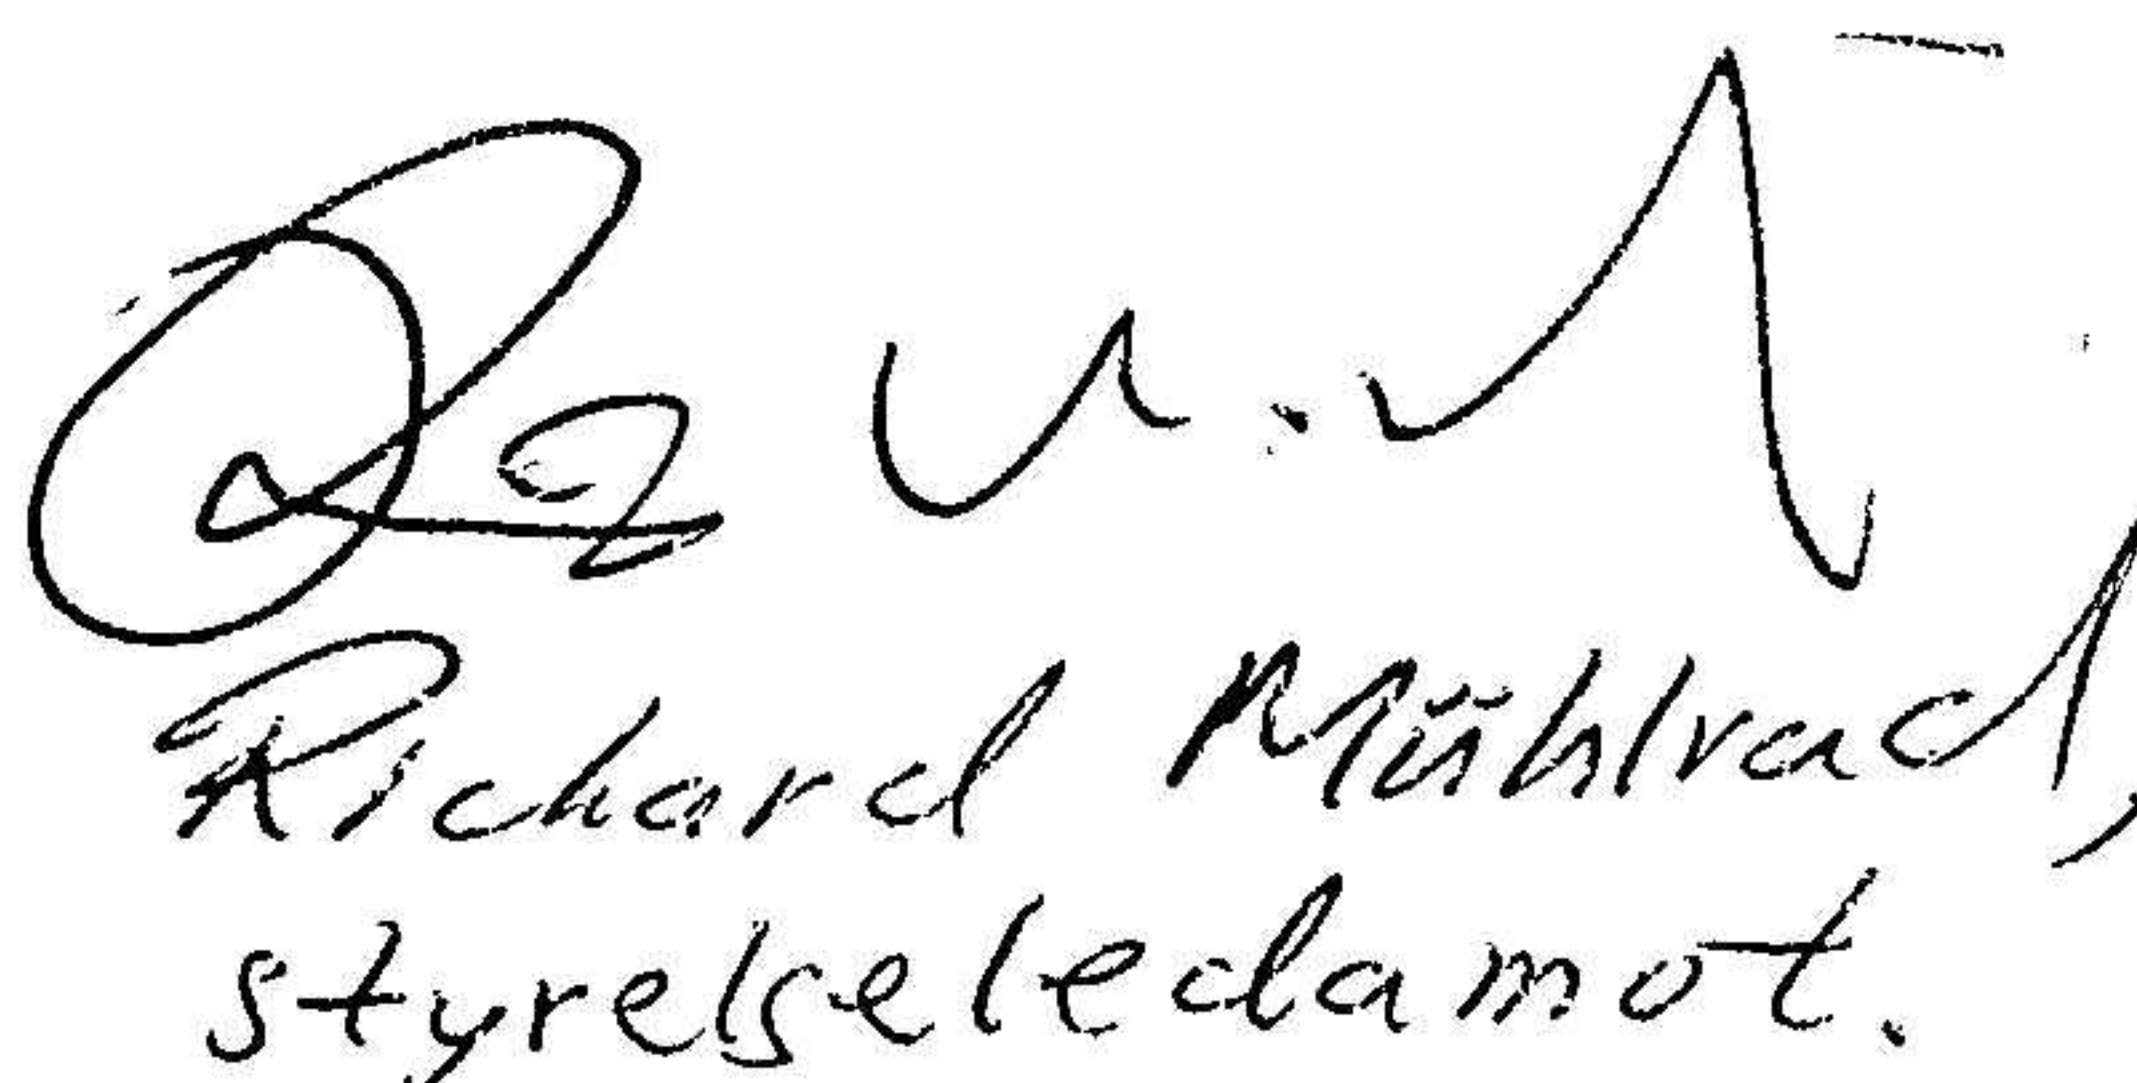 Richard Mühlrad,
styrelseledamot.